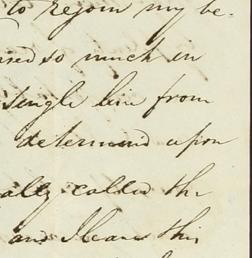 to rejoin my be-
so much in
single line from
determined upon
ally called the
and I leave this